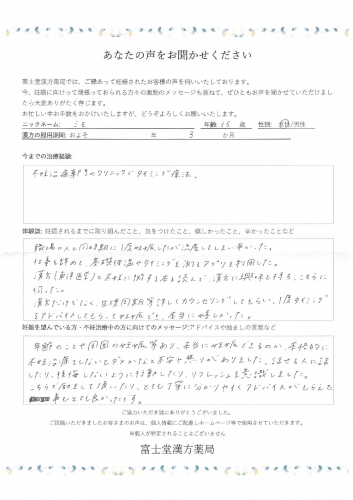 あなたの声をお聞かせください
富士堂漢方薬局では、ご縁あって妊娠されたお客様の声を伺いいたしております。
今、妊娠に向けって頑張っておられる方々の激励のメッセージも兼ねて、ぜひともお声を聞かせていただけまし
たら大変ありがたく存じます。
お忙しい中お手数をおかけいたしますが、どうぞよろしくお願いいたします。
ニックネーム: 年齢: 歳 性別: 女性/男性
漢方の服用期間: およそ 年 3 か月
今までの治療経験:
不妊治療専門のクリニックでタイミング療法。
体験談: 妊娠されるまでに取り組んだこと、気をつけたこと、嬉しかったこと、辛かったことなど
職場の人と同時期に1度妊娠したが流産してしまい辛かった。
仕事を辞めて、基礎体温やタイミングを測るアプリを利用した。
漢方(東洋医学)と不妊に関する本を読んで、漢方に興味をもち、こちらに
伺った。
漢方だけでなく、生理周期等詳しくカウンセリングしてもらい、1度タイミング
をアドバイスしてもらって妊娠でき、本当に嬉しかった。
妊娠を望んでいる方・不妊治療中の方に向けてのメッセージ:アドバイスや励ましの言葉など
年齢のことや周囲の妊娠等あり、本当に妊娠できるのか、本格的に
不妊治療をしないとダメかなと不安や焦りがありました。話せる人に話
したり、後悔しないように行動したり、リフレッシュを意識しました。
こちらで励まして頂いたり、とても丁寧に分かりやすくアドバイスがもらえた
事もとても良かったです。
ご協力いただき誠にありがとうございました。
ご投稿いただきましたお客さまのお声は、個人情報にご配慮しホームページ等で使用させていただきます。
※個人が特定されることはございません
富士堂漢方薬局